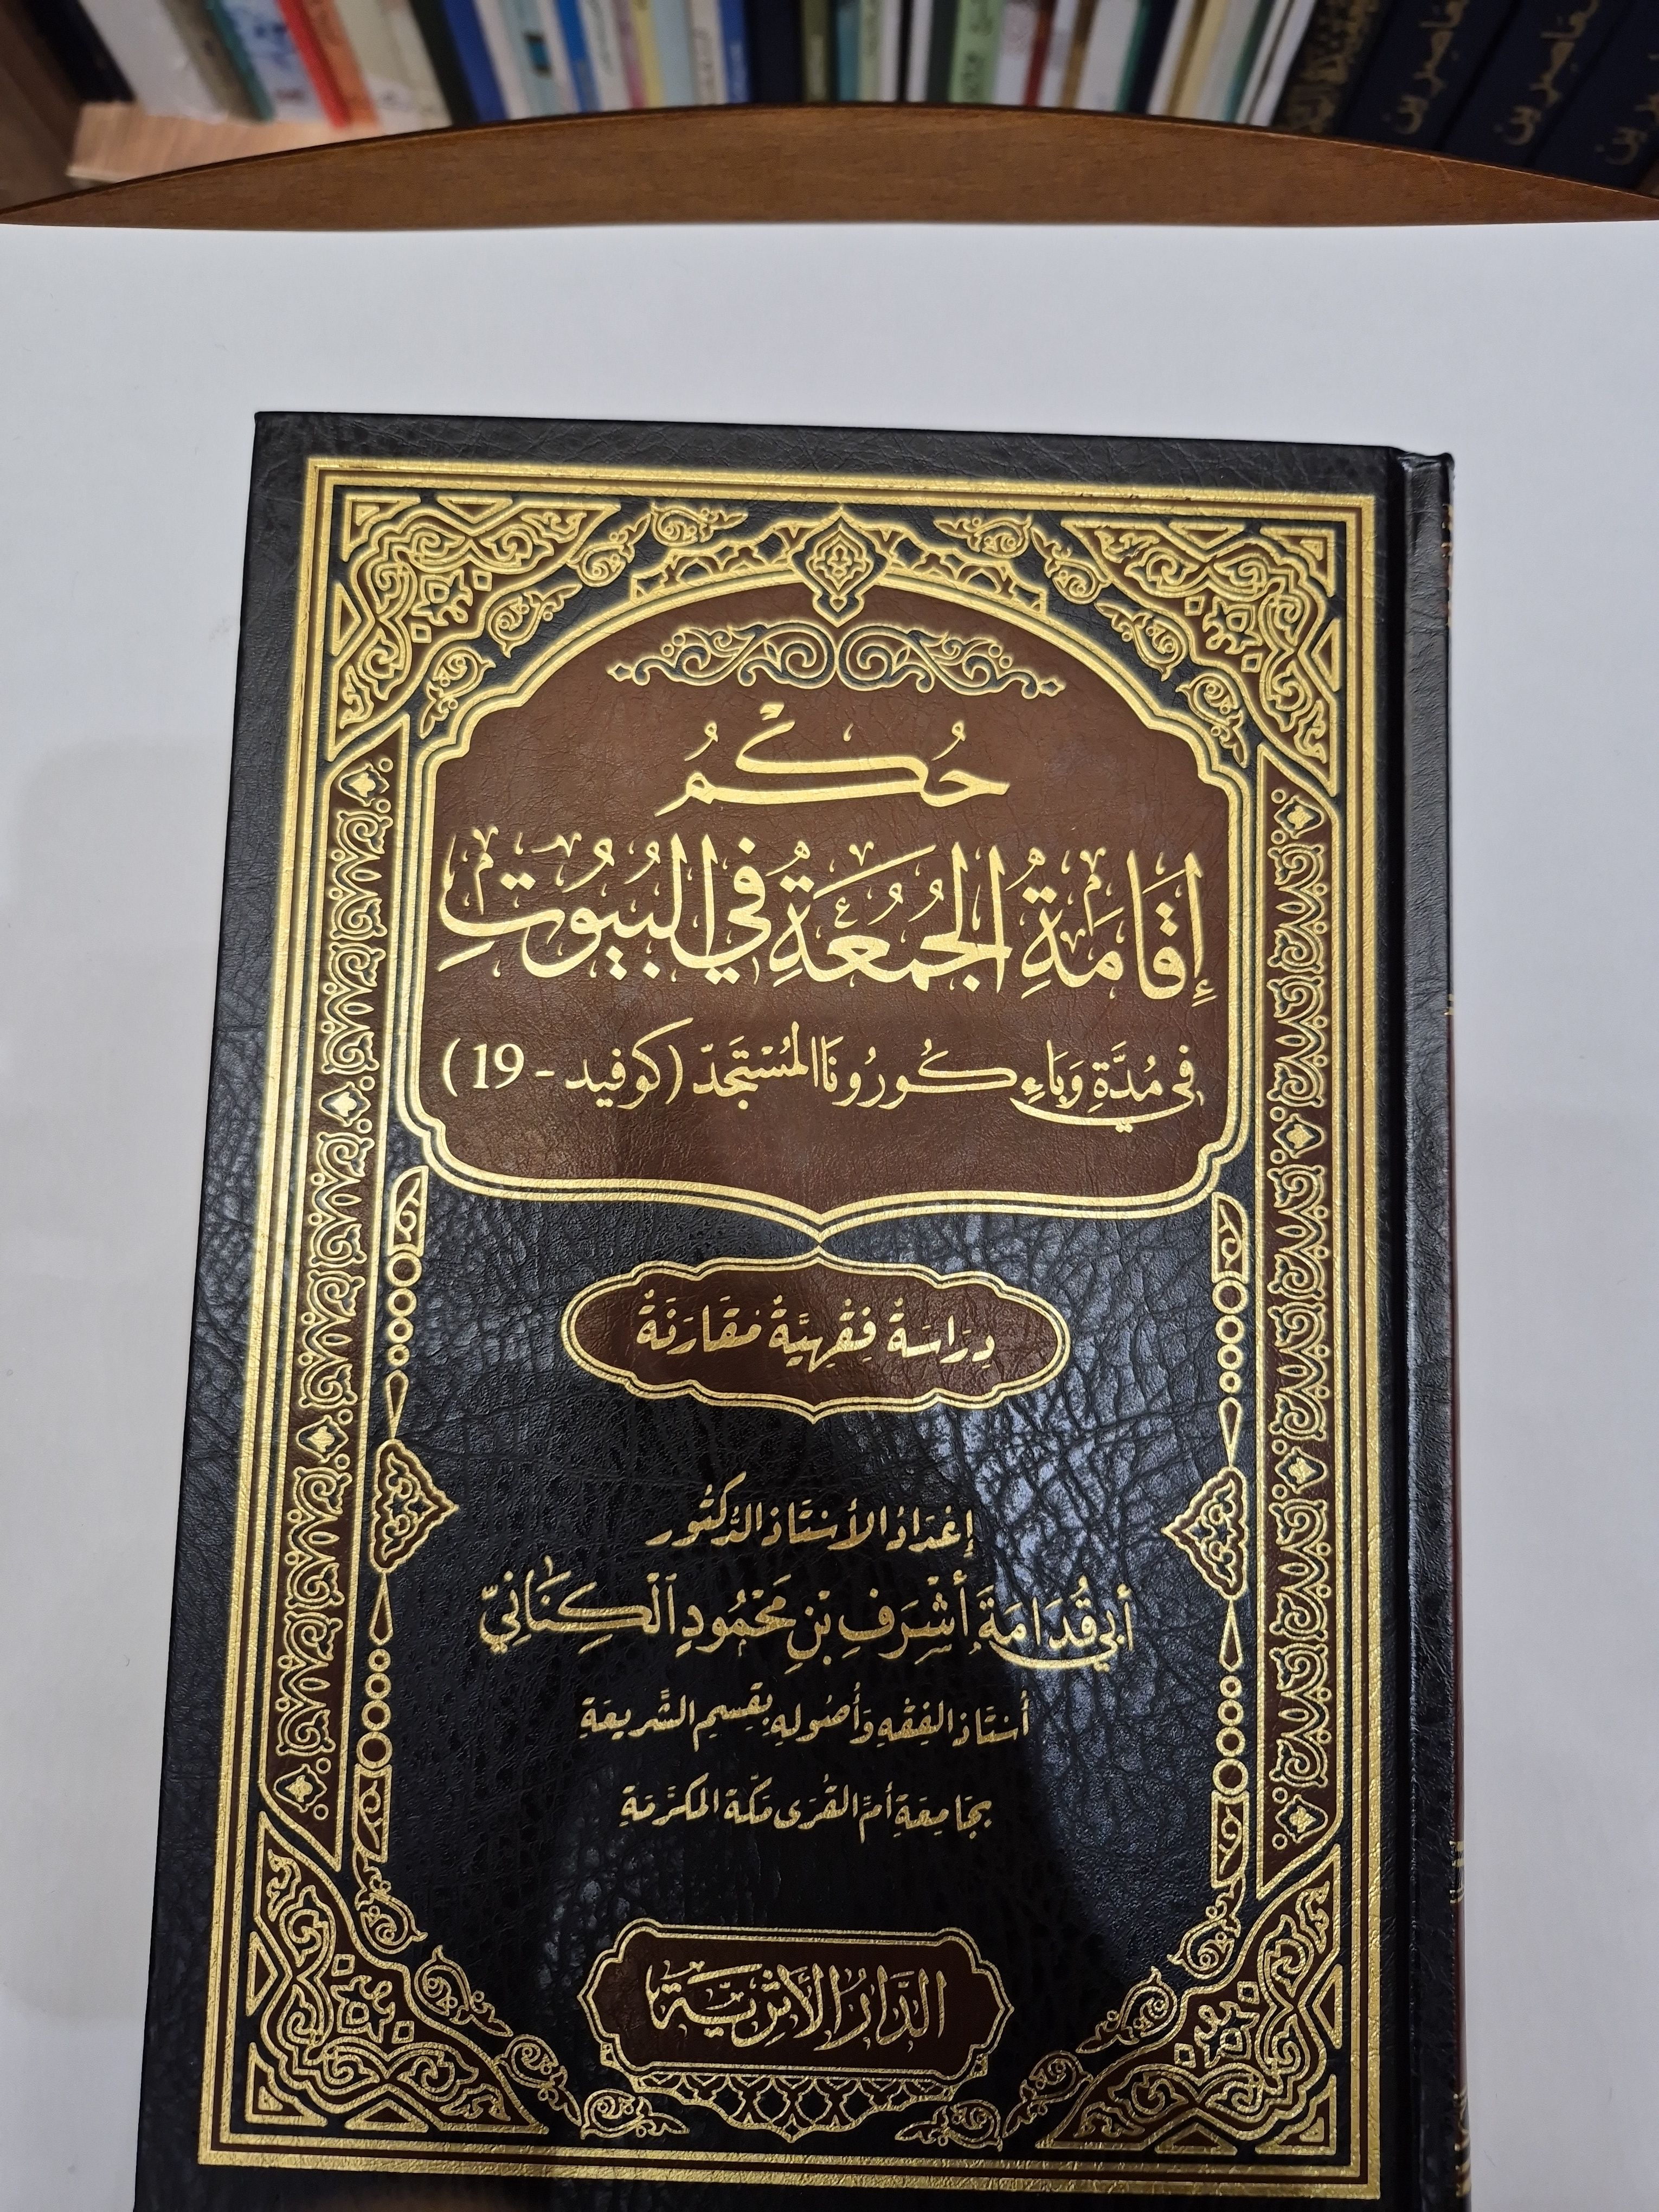 حُكْمُ
إِقَامَةِ الجُمُعَةِ فِي البُيُوتِ
فِي مُدَّةِ وَبَاءِ كُورُونَا المُسْتَجَدّ (كوفيد - 19)
دِرَاسَةٌ فِقْهِيَّةٌ مُقَارَنَةٌ
إِعْدَادُ الأُسْتَاذِ الدُّكْتُور
أَبِي قُدَامَةَ أَشْرَفِ بْنِ مَحْمُودٍ ٱلْكِنَانِيّ
أُسْتَاذِ الفِقْهِ وَأُصُولِهِ بِقِسْمِ الشَّرِيعَةِ
بِجَامِعَةِ أُمِّ القُرَى مَكَّة المُكَرَّمَةِ
الدَّارُ الأَثَرِيَّة